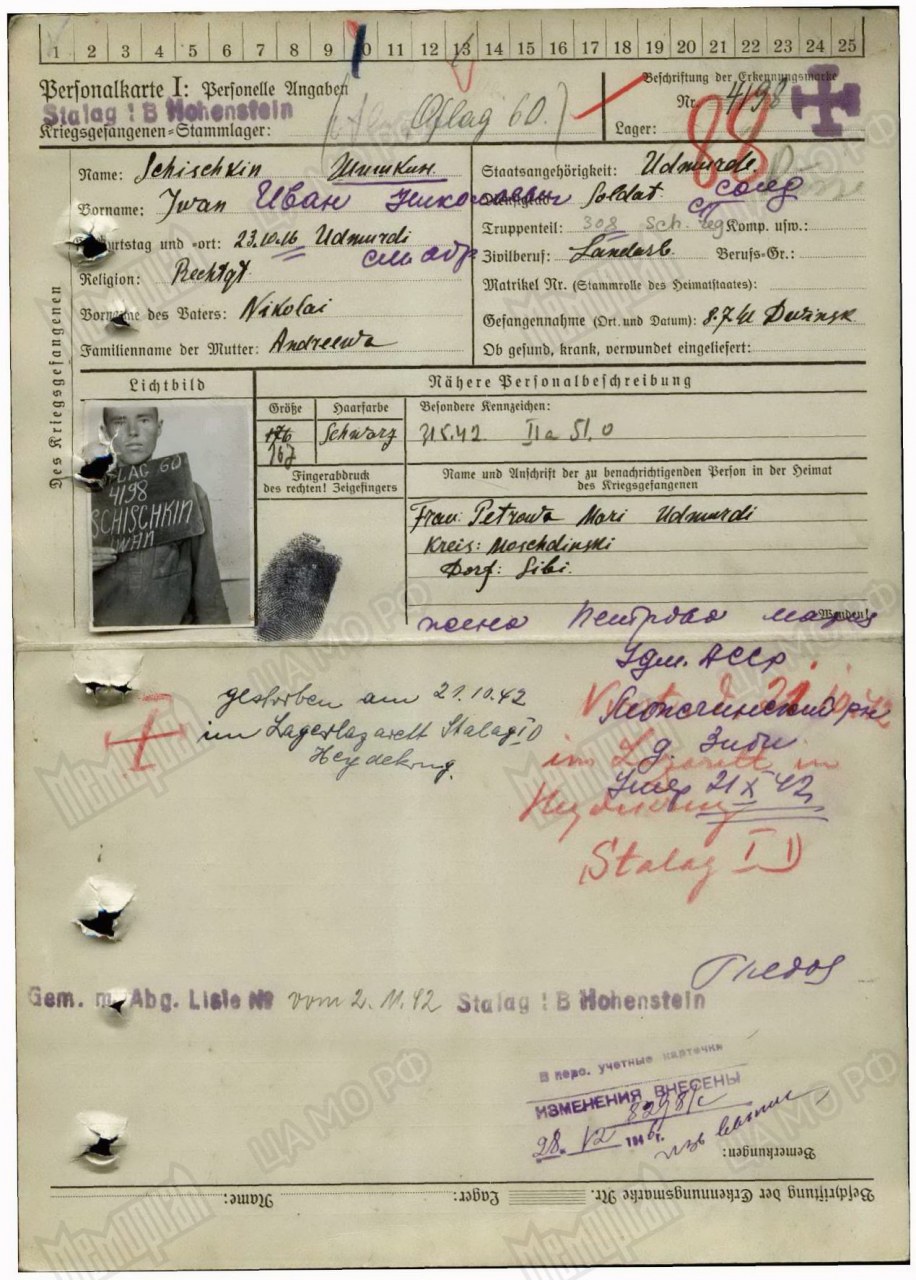 1 2 3 4 5 6 7 8 9 10 11 12 13 14 15 16 17 18 19 20 21 22 23 24 25
Personalkarte I: Personelle Angaben
Beschriftung der Erkennungsmarke
Stalag I B Hohenstein
Oflag 60.)
Nr. 4198
Kriegsgefangenen-Stammlager:
Lager:
88
Des Kriegsgefangenen
Name: Schischkin Шишкин
Staatsangehörigkeit: Udmurde
Vorname: Jwan Иван Николаевич
Dienstgrad: Soldat солд
Truppenteil: 308 Sch. Reg Komp. usw.:
Geburtstag und -ort: 23.10.16 Udmurdi
см обр
Zivilberuf: Landarb. Berufs-Gr.:
Religion: Rechtgl
Matrikel Nr. (Stammrolle des Heimatstaates):
Vorname des Vaters: Nikolai
Gefangennahme (Ort und Datum): 8.7.41
Familienname der Mutter: Andreewa
Ob gesund, krank, verwundet eingeliefert:
Lichtbild
Nähere Personalbeschreibung
Größe
Haarfarbe
Besondere Kennzeichen:
176
167
Schwarz
IIa Sl. 0
Fingerabdruck
des rechten! Zeigefingers
Name und Anschrift der zu benachrichtigenden Person in der Heimat
des Kriegsgefangenen
FLAG 60
4198
SCHISCHKIN
IWAN
Frau: Petrowa Mari Udmurdi
Kreis: Moschdinski
Dorf: Sibi.
Wenden!
жена Петрова
Удм. АССР
д. Зиби
Умер 21 X 42
gestorben am 21.10.42
im Lagerlazarett Stalag I D
Heydekrug.
im Lazarett in
Heydekrug
Stalag I D
Gem. m. Abg. Liste № vom 2.11.42 Stalag I B Hohenstein
В перс. учетные карточки
ИЗМЕНЕНИЯ ВНЕСЕНЫ
28. 194 г.
Bemerkungen:
Beschriftung der Erkennungsmarke Nr. Lager: Name:
Мемориал
ЦАМО РФ